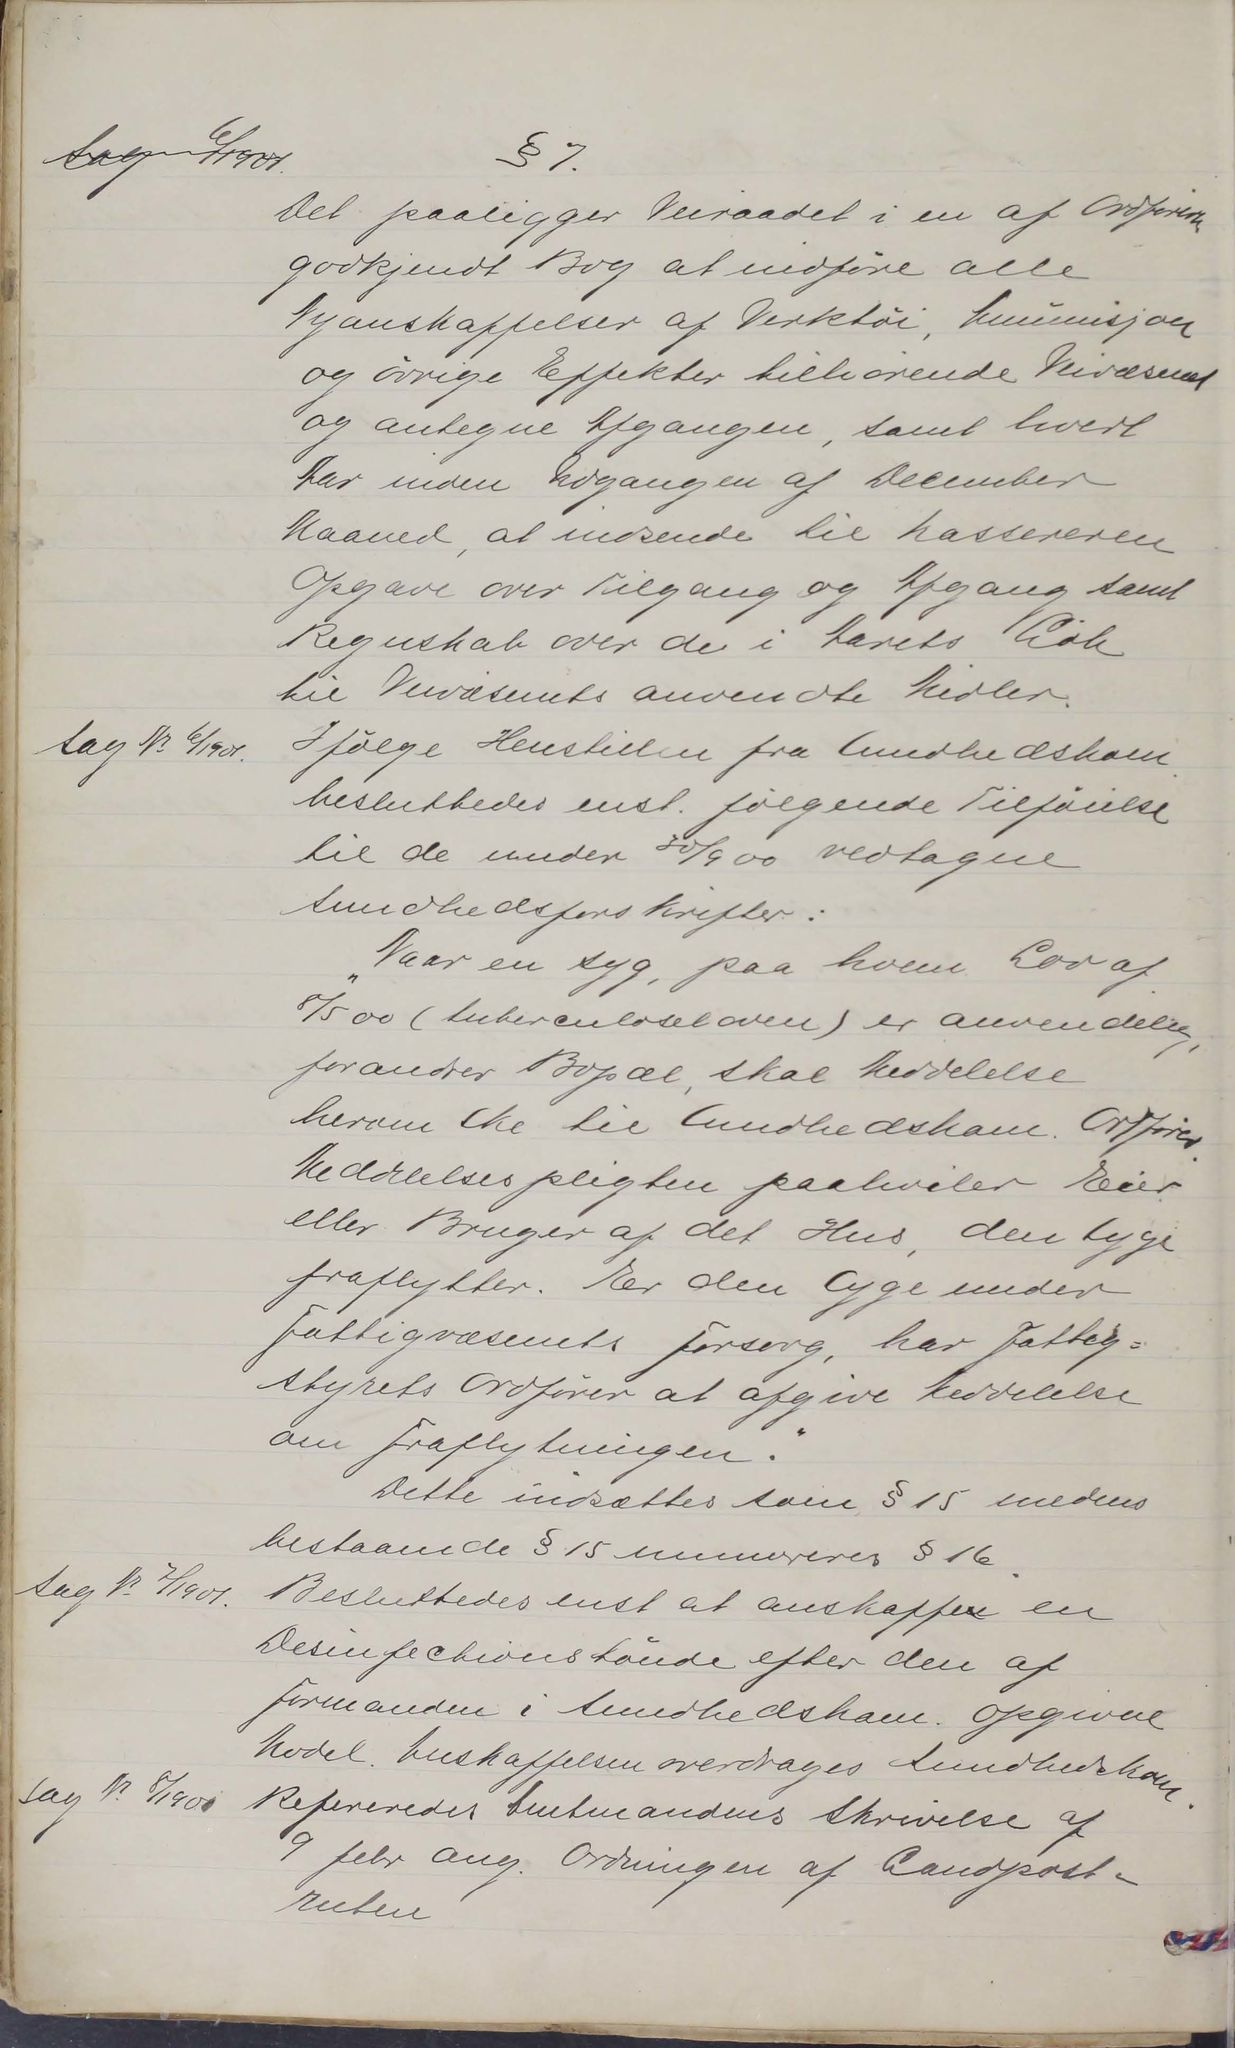 Sag 6/1901.
§ 7.
Det paaligger Veiraadet i en af Ordføreren
godkjendt Bog at indføre alle
Nyanskaffelser af Verktöi, Ammunisjon
og övrige Effekter tilhörende Veivæsenet
og antegne Afgangen, samt hvert
Aar inden Udgangen af December
Maaned, at indsende til Kassereren
Opgave over Tilgang og Afgang samt
Regnskab over de i Aarets Löb
til Veivæsenets anvendte Midler.
Sag No 6/1901. Ifölge Henstillen fra Sundhedskom.
besluttedes enst. fölgende Tilföielse
til de under 30/9 00 vedtagne
Sundhedsforskrifter:
„Naar en syg, paa hvem Lov af
8/5 00 (Tuberculoseloven) er anvendelig,
forandrer Bopæl, skal Meddelelse
herom ske til Sundhedskom. Ordfører.
Meddelelsespligten paahviler Eier
eller Bruger af det Hus, den Syge
fraflytter. Er den Syge under
Fattigvæsenets Forsorg, har Fattig=
styrets Ordfører at afgive Meddelelse
om Fraflytningen."
Dette indsættes som § 15 medens
bestaaende § 15 nummereres § 16.
Sag No 7/1901. Besluttedes enst at anskaffe en
Desinfectionstönde efter den af
Formanden i Sundhedskom. opgivne
Model. Anskaffelsen overdrages Sundhedskom.
Sag No 8/1901 Refereredes Amtmandens Skrivelse af
9 febr ang. Ordningen af Landpost-
ruten